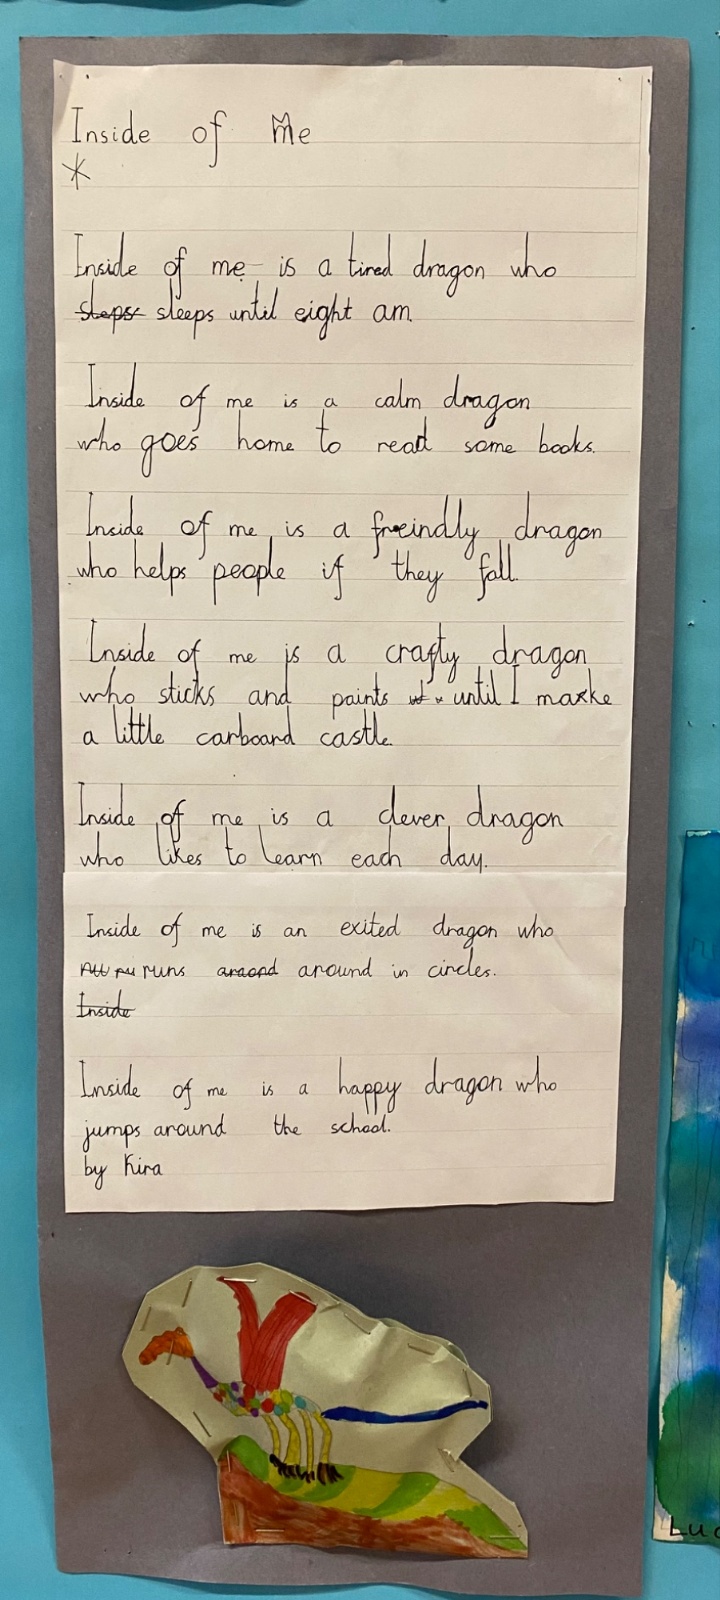 Inside of Me
*
Inside of me is a tired dragon who
sleps sleeps until eight am.
Inside of me is a calm dragon
who goes home to read some books.
Inside of me is a freindly dragon
who helps people if they fall.
Inside of me is a crafty dragon
who sticks and paints until I make
a little carboard castle.
Inside of me is a clever dragon
who likes to learn each day.
Inside of me is an exited dragon who
runs araond around in circles.
Inside
Inside of me is a happy dragon who
jumps around the school.
by Kira
Luc